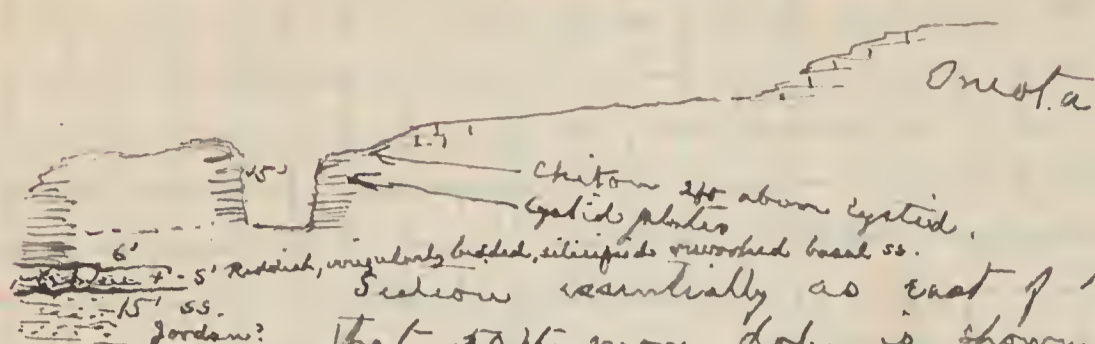 Oneota
15'
Chiton 2 ft above cystid.
Cystid plates
6'
5' Reddish, irregularly bedded, silicified reworked basal ss.
15' ss.
Jordan?
Section essentially as east of
That more dol. is shown